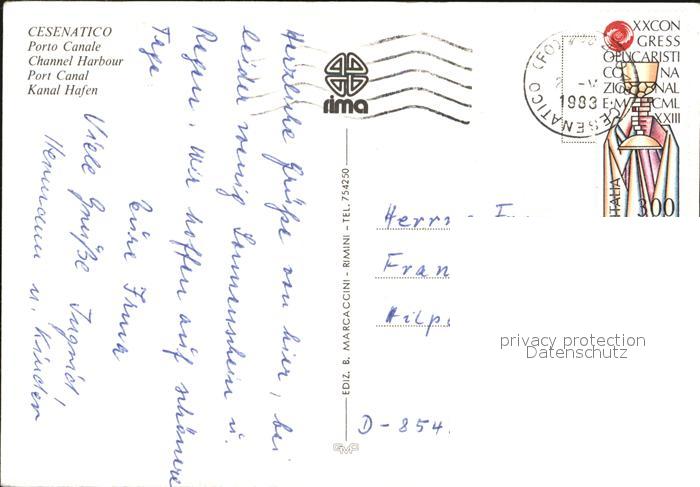 CESENATICO
Porto Canale
Channel Harbour
Port Canal
Kanal Hafen
rima
Herzliche Grüße von hier, bei
leider wenig Sonnenschein u.
Regen. Wir hoffen auf schönere
Tage
Eure Irma
Viele Grüße Ingrid,
Hermann u. Kinder
EDIZ. B. MARCACCINI - RIMINI - TEL. 754250
CESENATICO (FO)
1983
XXCON
GRESS
OEUCARISTI
CO NA
ZIONAL
E·M CML
XXIII
ITALIA
300
Herrn
Fran
Hilp
D-854
privacy protection
Datenschutz